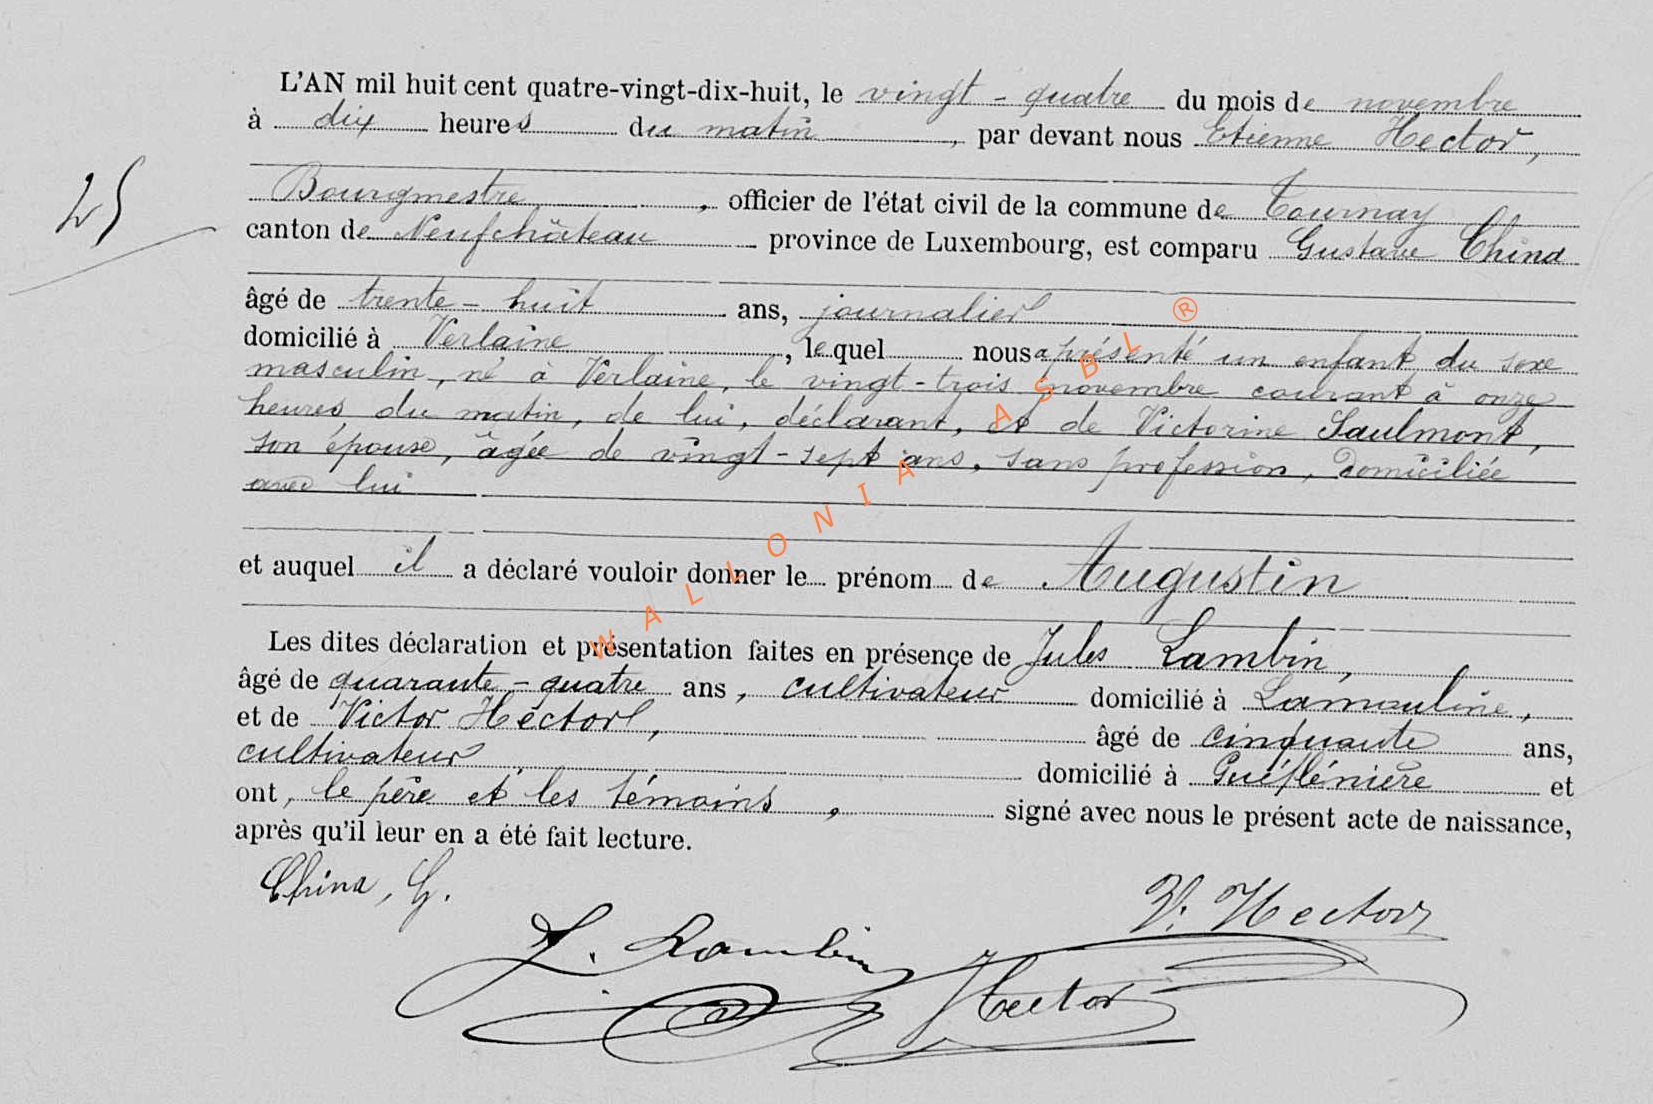 L'AN mil huit cent quatre-vingt-dix-huit, le vingt-quatre du mois de novembre
à dix heures du matin, par devant nous Etienne Hector,
Bourgmestre, officier de l'état civil de la commune de Tournay
25
canton de Neufchâteau province de Luxembourg, est comparu Gustave China
âgé de trente-huit ans, journalier
domicilié à Verlaine, lequel nous a présenté un enfant du sexe
masculin, né à Verlaine, le vingt-trois novembre courant à onze
heures du matin, de lui, déclarant, et de Victorine Saulmont,
son épouse, âgée de vingt-sept ans, sans profession, domiciliée
avec lui
et auquel il a déclaré vouloir donner le prénom de Augustin
Les dites déclaration et présentation faites en présence de Jules Lambin,
âgé de quarante-quatre ans, cultivateur domicilié à Lamouline,
et de Victor Hector, âgé de cinquante ans,
cultivateur domicilié à et
ont, le père et les témoins, signé avec nous le présent acte de naissance,
après qu'il leur en a été fait lecture.
China, G.
V. Hector
J. Lambin
Hector
WALLONIA ASBL ®